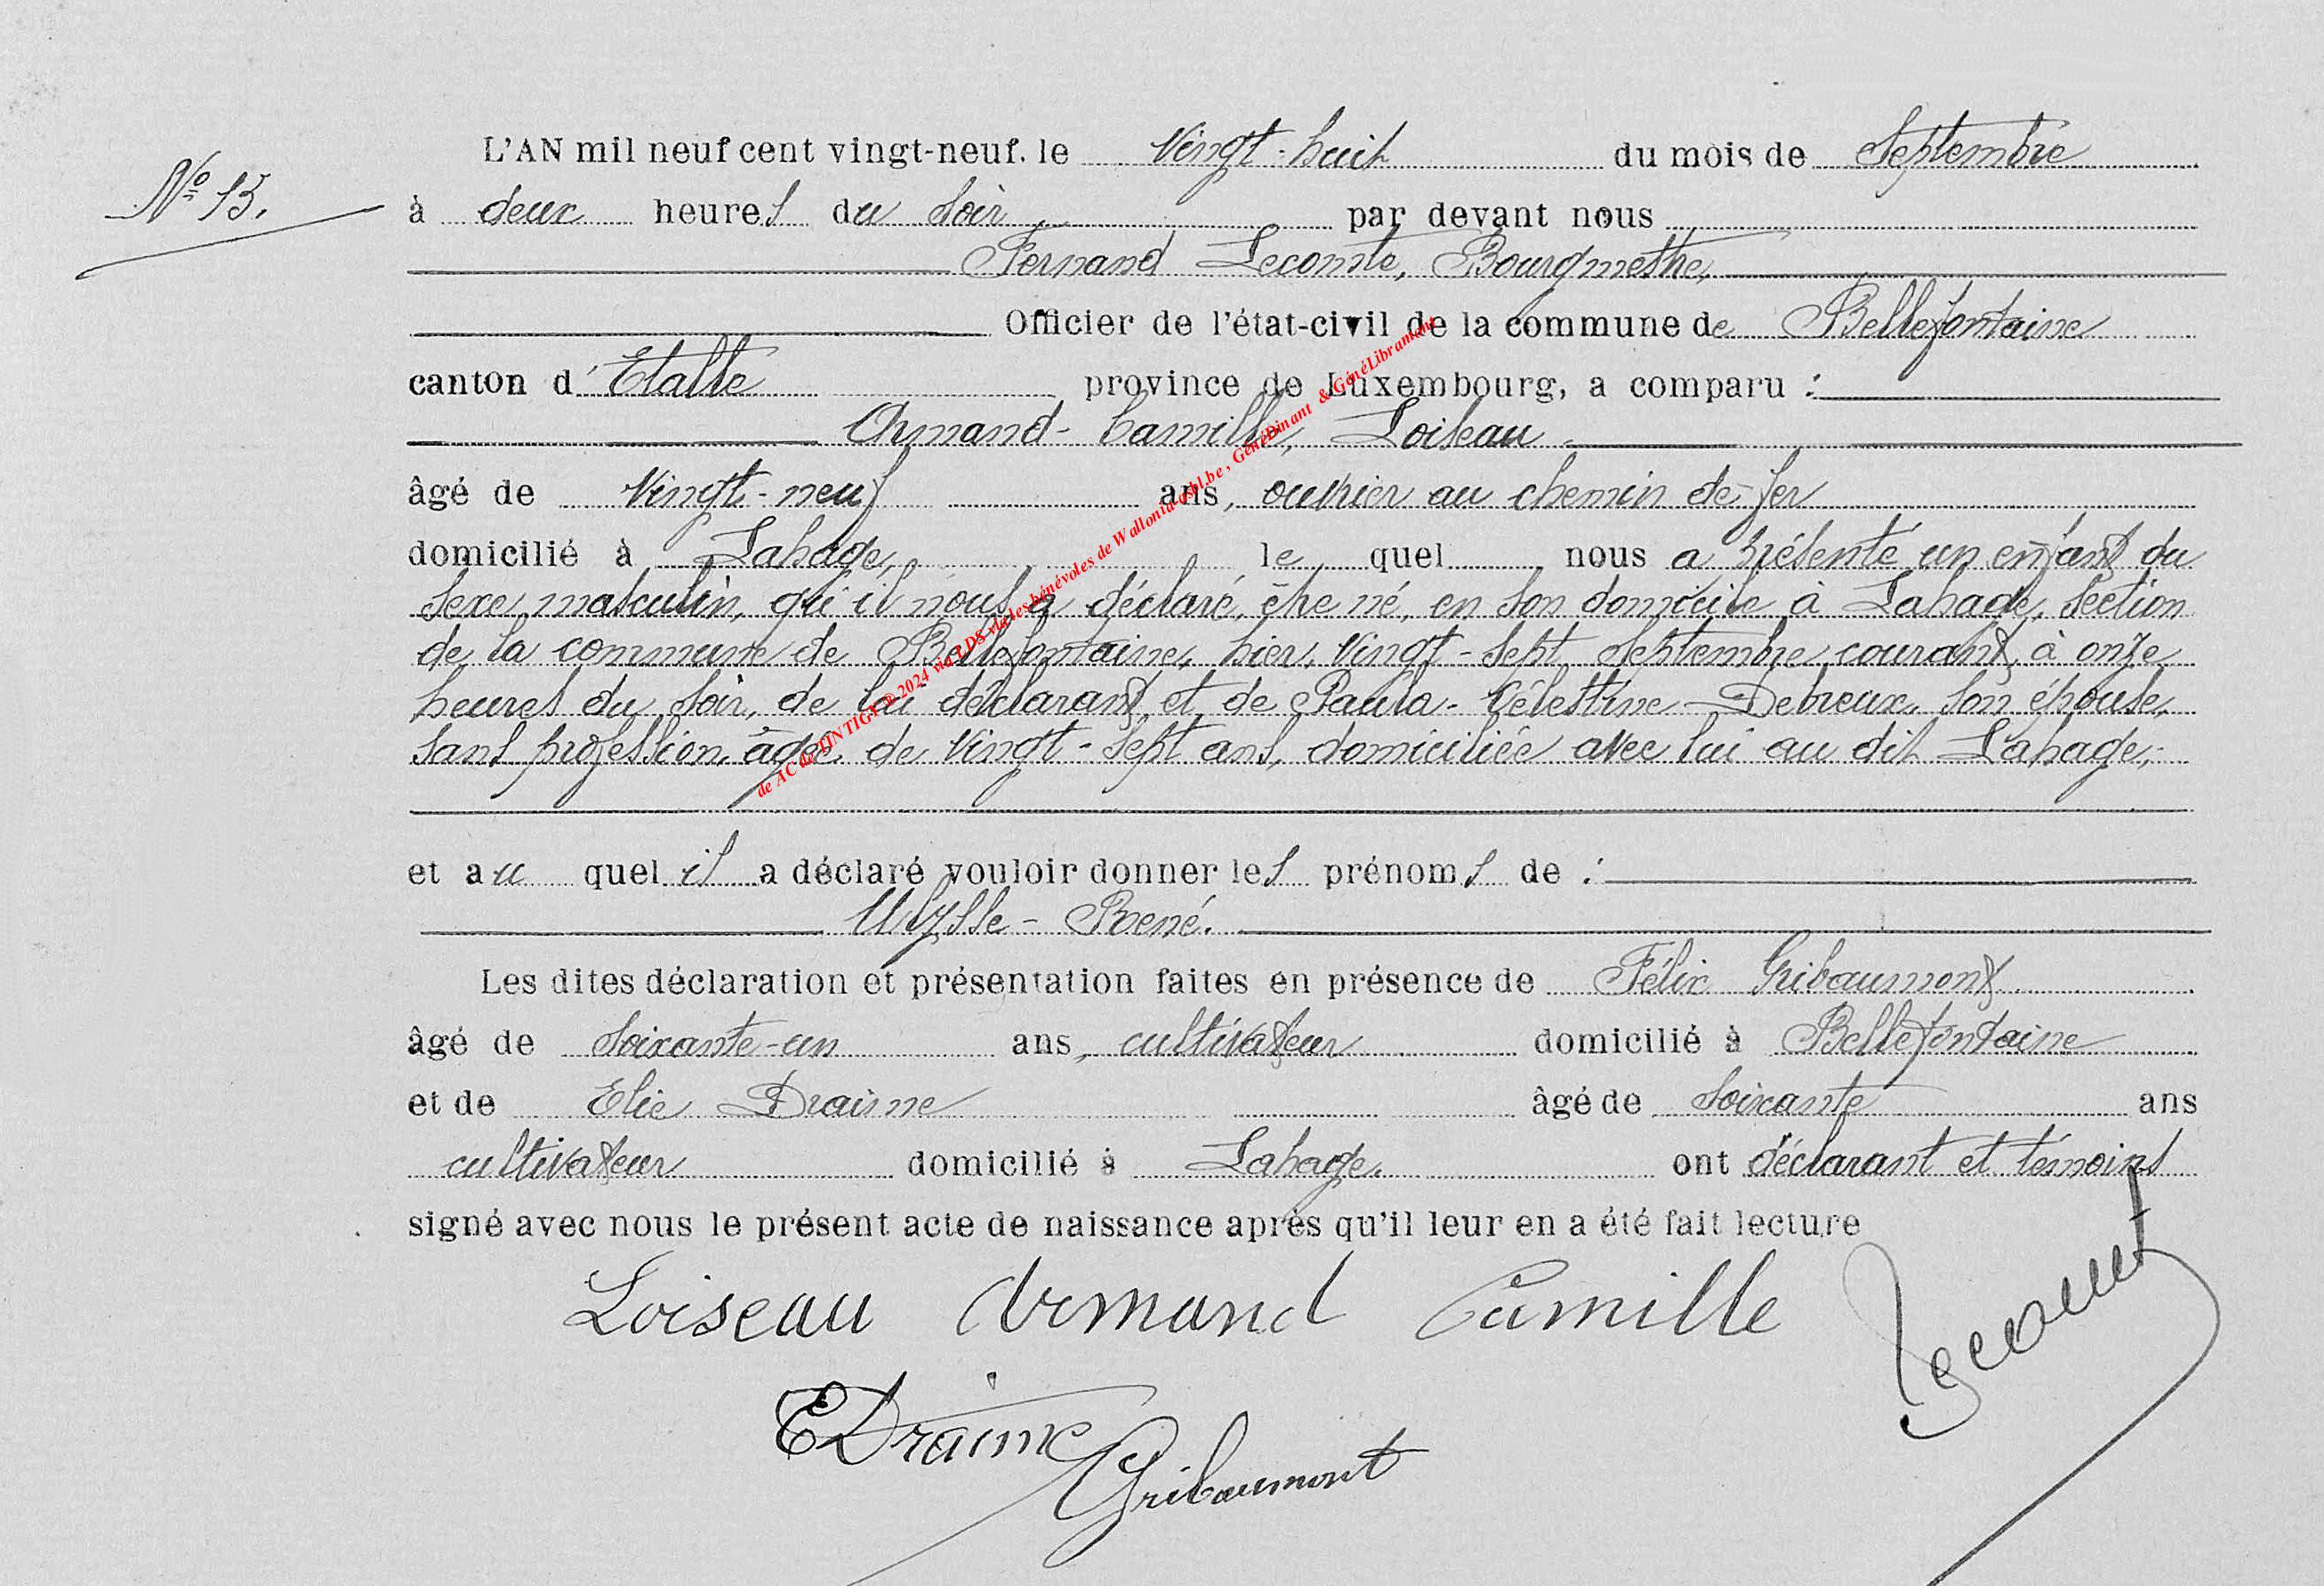 N° 13.
L'AN mil neuf cent vingt-neuf, le Vingt-huit du mois de Septembre
à deux heures du soir, par devant nous
Fernand Lecomte, Bourgmestre,
Officier de l'état-civil de la commune de Bellefontaine
canton d'Etalle province de Luxembourg, a comparu :
Armand-Camille, Loiseau
âgé de Vingt-neuf ans, ouvrier au chemin de fer
domicilié à Lahage, le quel nous a présenté un enfant du
sexe masculin, qu'il nous a déclaré, être né, en son domicile à Lahage, section
de la commune de Bellefontaine, hier, Vingt-sept Septembre courant, à onze
heures du soir, de lui déclarant, et de Paula-Célestine Debreux, son épouse,
sans profession, âgée de Vingt-sept ans, domiciliée avec lui au dit Lahage,
et au quel il a déclaré vouloir donner les prénoms de :
Ulysse-René.
Les dites déclaration et présentation faites en présence de Félix Gribaumont
âgé de soixante-un ans, cultivateur domicilié à Bellefontaine
et de Elie Draime âgé de soixante ans
cultivateur domicilié à Lahage, ont déclarant et témoins
signé avec nous le présent acte de naissance après qu'il leur en a été fait lecture
Loiseau Armand Camille
Lecomte
EDraime
Gribaumont
de AC de TINTIGY © 2024 via LDS via les bénévoles de Wallonia-asbl.be, GénéDinant & GénéLibramont